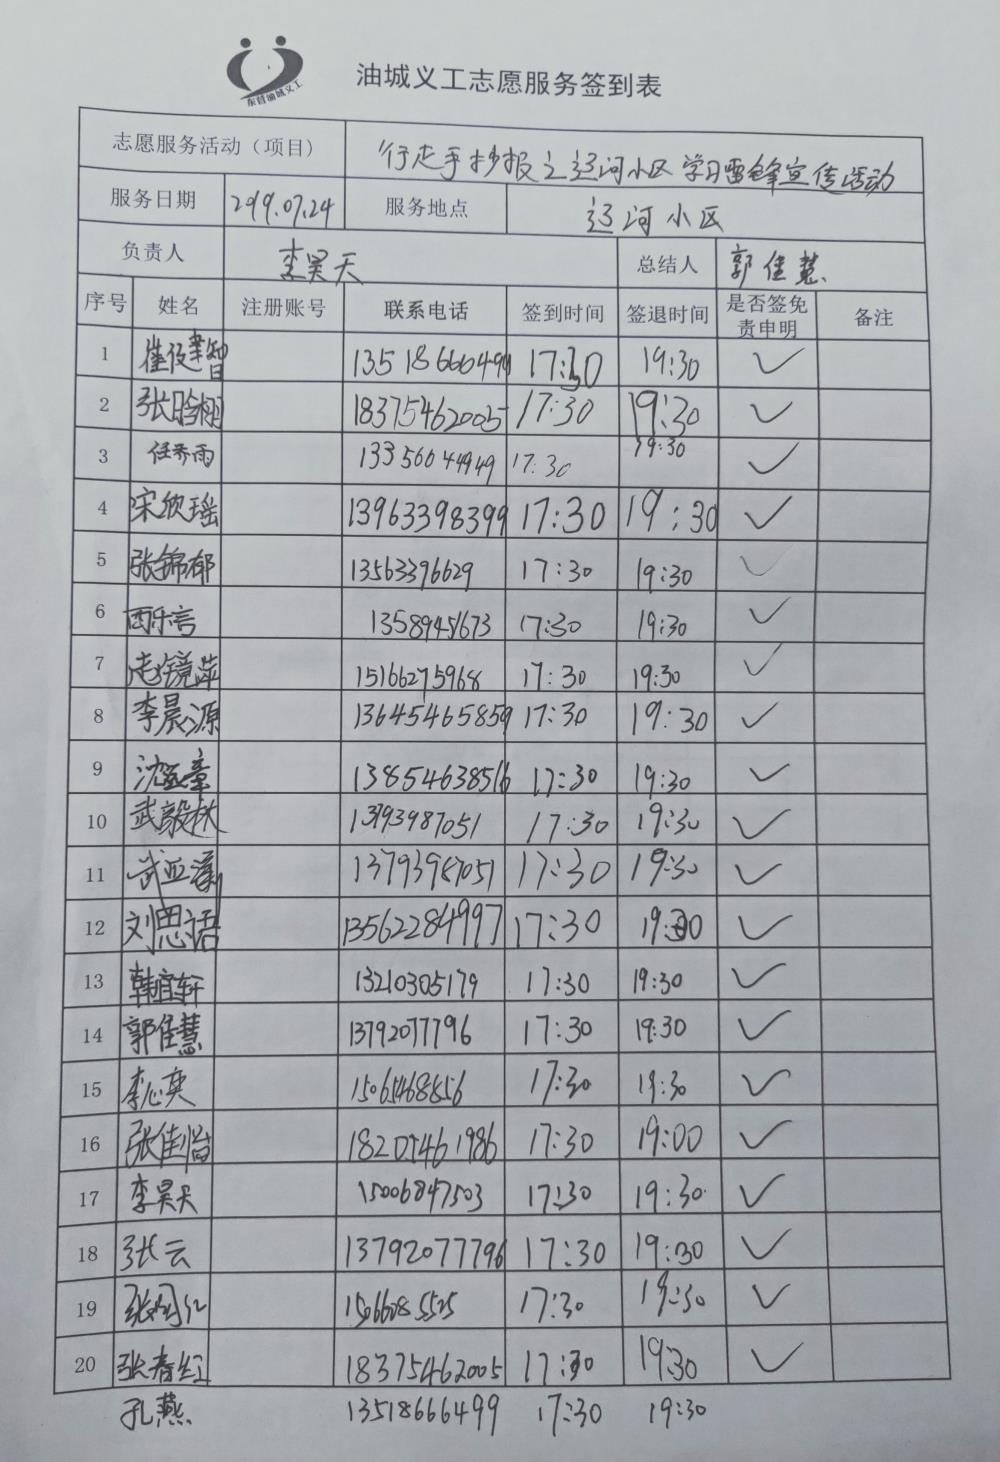 东营油城义工
油城义工志愿服务签到表
志愿服务活动（项目） 行走手抄报之运河小区学习雷锋宣传活动
服务日期 2019.07.24 服务地点 运河小区
负责人 李昊天 总结人 郭佳慧
序号 姓名 注册账号 联系电话 签到时间 签退时间 是否签免责申明 备注
1 13518666499 17:30 19:30 ✓
2 18375462005 17:30 19:30 ✓
3 任秀雨 13356044949 17:30 19:30 ✓
4 宋欣瑶 13963398399 17:30 19:30 ✓
5 张锦郁 13563396629 17:30 19:30 ✓
6 西乐言 13589451673 17:30 19:30 ✓
7 赵镜萍 15166275968 17:30 19:30 ✓
8 李晨源 13645465859 17:30 19:30 ✓
9 13854638516 17:30 19:30 ✓
10 武毅林 13793987051 17:30 19:30 ✓
11 13793987051 17:30 19:30 ✓
12 刘思语 13562284997 17:30 19:30 ✓
13 韩宜轩 13210305179 17:30 19:30 ✓
14 郭佳慧 13792077796 17:30 19:30 ✓
15 李心英 15065468856 17:30 19:30 ✓
16 张佳怡 18205461986 17:30 19:00 ✓
17 李昊天 15006847503 17:30 19:30 ✓
18 张云 13792077796 17:30 19:30 ✓
19 15066085525 17:30 19:30 ✓
20 张春红 18375462005 17:30 19:30 ✓
孔燕 13518666499 17:30 19:30